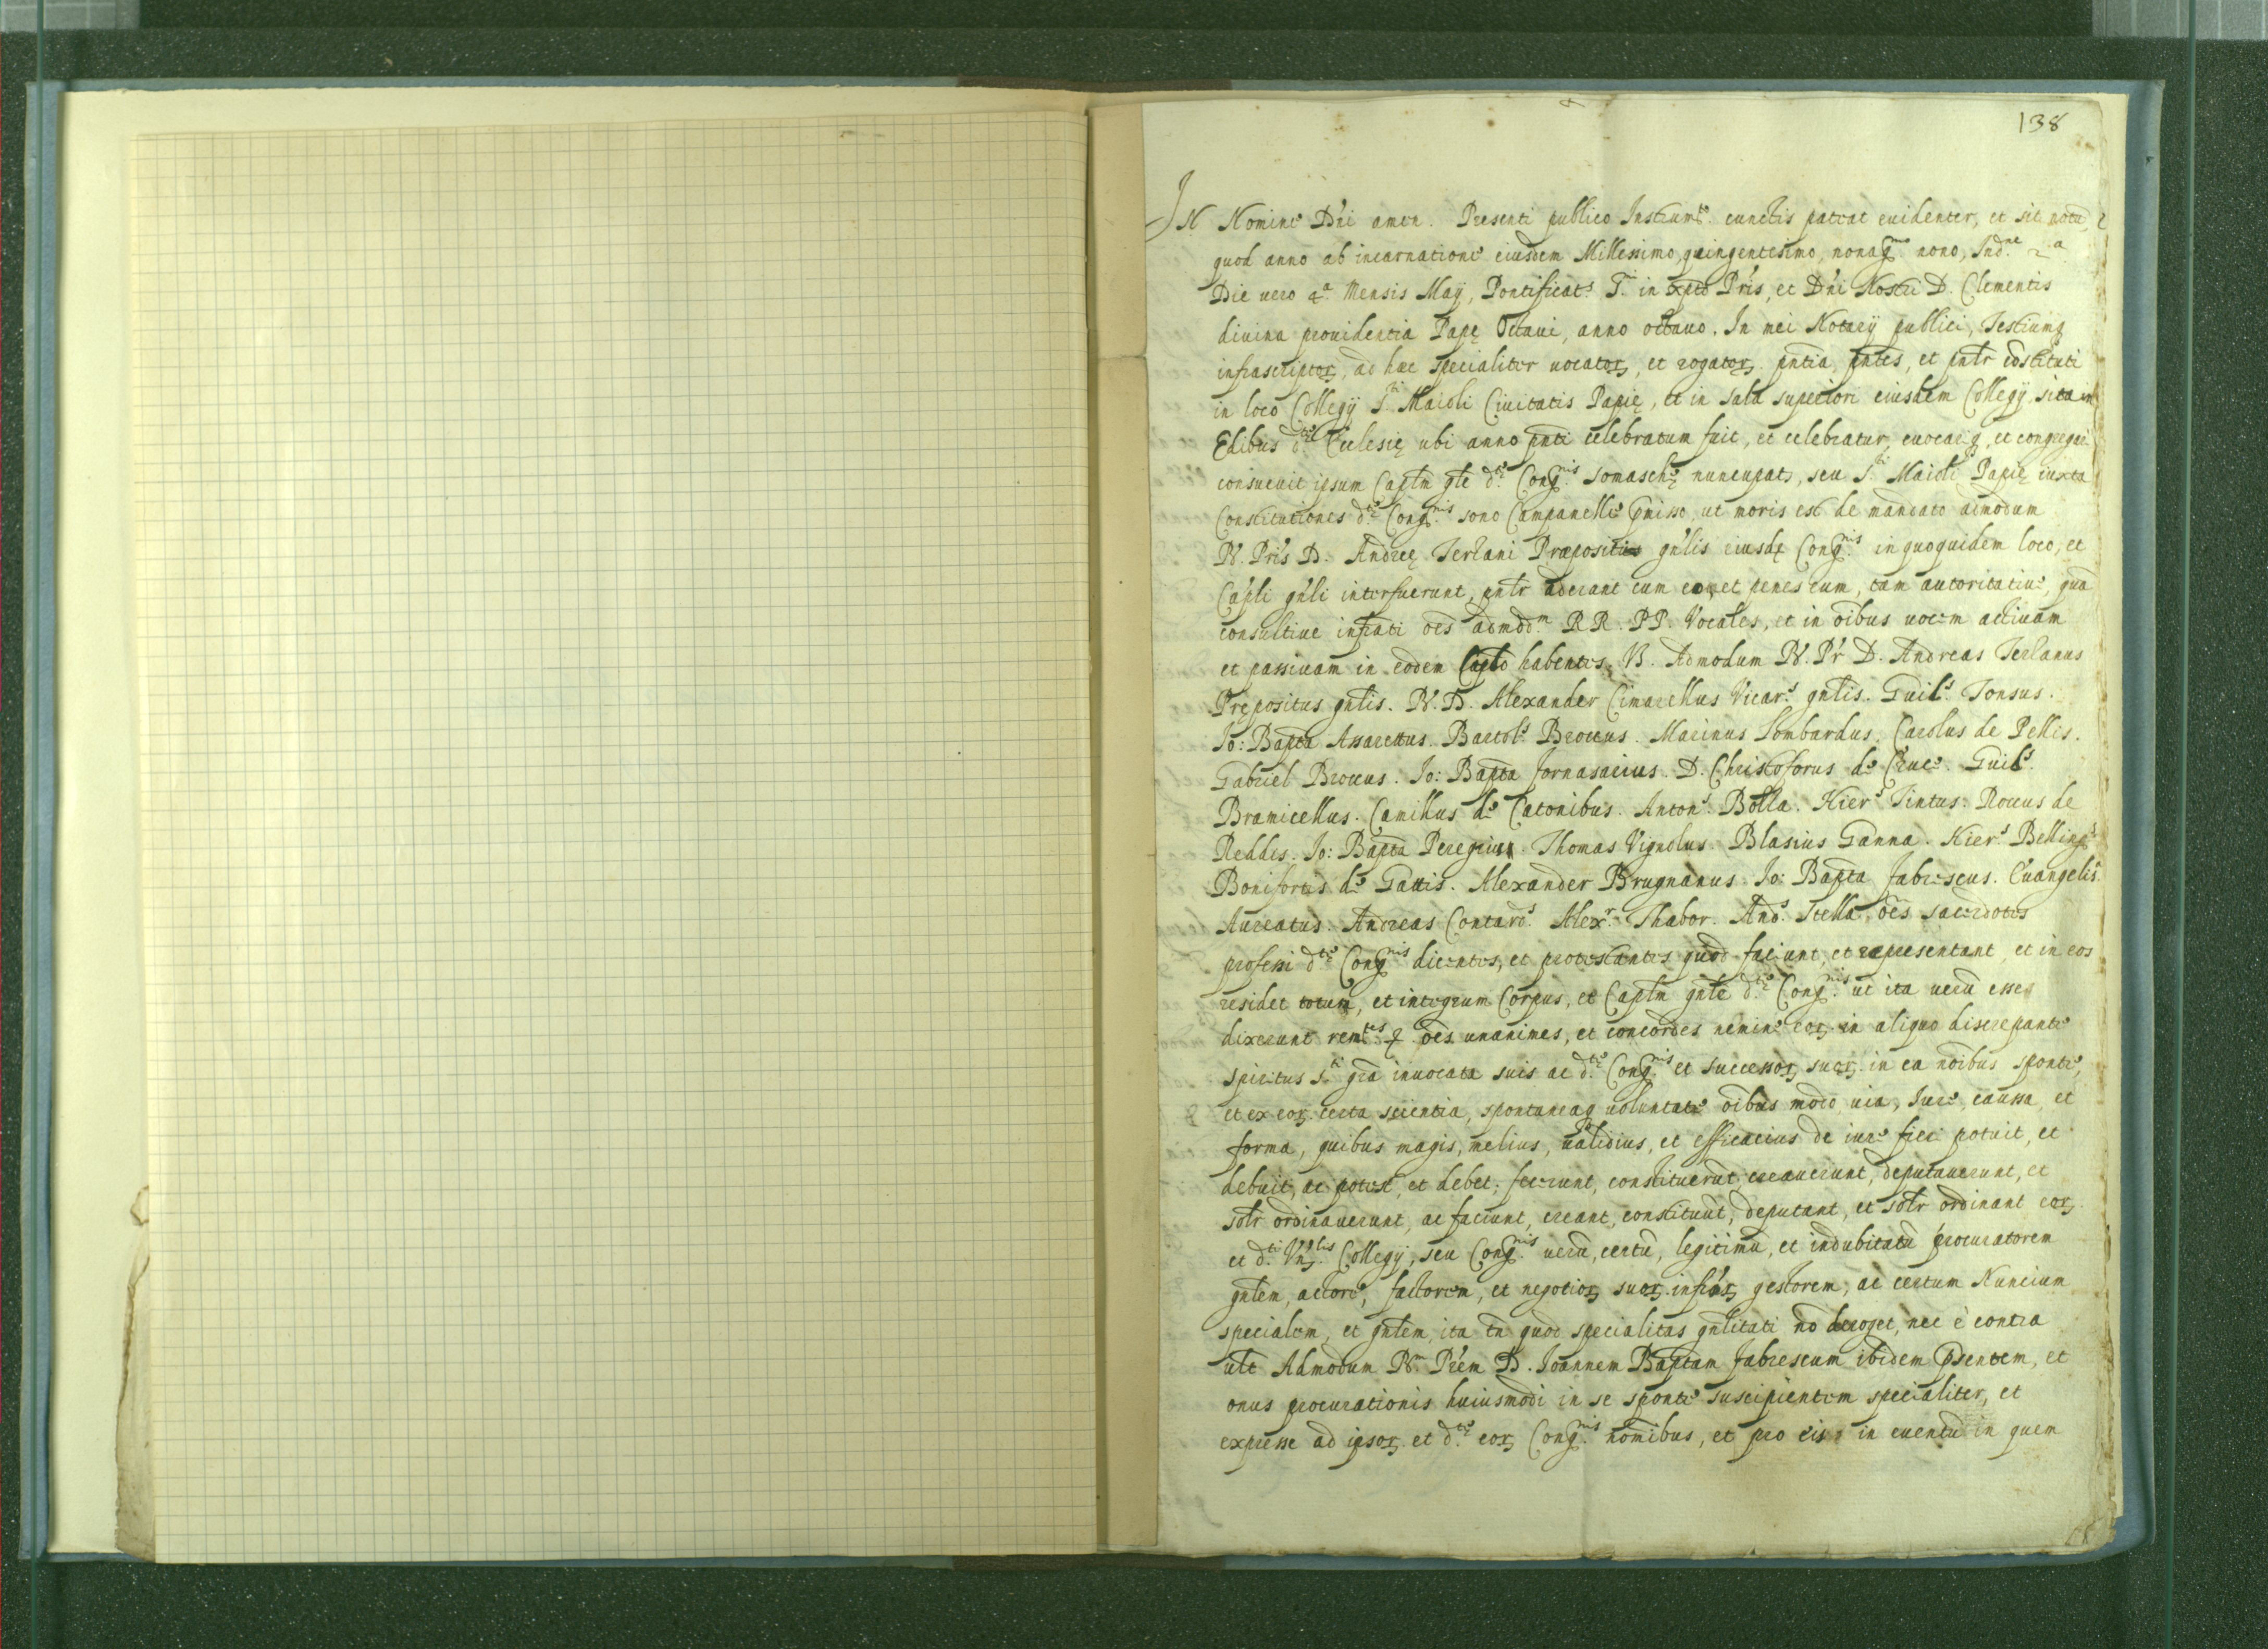 138
IN Nomine Dn̄i amen. Presenti publico Instrumto. cunctis pateat euidenter, et sit notū,
quod anno ab incarnatione eiusdem Millessimo, quingentesimo, nonagmo nono, Indne 2a
Die uero 4a Mensis Maÿ, Pontificats. S. in xpto Pr̄is, et Dn̄i Nostri D. Clementis
diuina prouidentia Papę Octaui, anno octauo. In mei Notarÿ publici, Testiumq
infrascriptoꝝ, ad hæc specialiter uocatoꝝ, et rogatoꝝ pn̄tia pn̄tes, et pn̄lr cōstituti
in loco Collegÿ S.ti Maioli Ciuitatis Papię, et in sala superiori eiusdem Collegÿ sita in
Edibus d.tę Ecclesię ubi anno pn̄ti celebratum fuit, et celebratur, euocariq, et congregari
consueuit ipsum Capl̄m gl̄e d.tę Congnis. somaschę nuncupats, seu S.ti Maioli Papię iuxta
Constitutiones d.tę Congnis. sono Campanelle p̄misso, ut moris est de mandato admodum
R. Pr̄is D. Andreę Terlani Præpositi gn̄lis eiusdę Congnis. in quoquidem loco, et
Cap̄li gn̄li interfuerunt, pn̄lr aderant cum eo, et penes eum, tam autoritatiue, quā
consultiue infrāti oēs admodm RR. PP. Vocales, et in oībus uocem actiuam
et passiuam in eodem Caplō habentes. V. Admodum R. Pr̄ D. Andreas Terlanus
Prępositus gn̄lis. R. D. Alexander Cimarellus Vicars. gn̄lis. Guils. Tonsus.
Io: Bapta Assarettus. Bartols. Broccus. Marinus Lombardus. Carolus de Pellis.
Gabriel Broccus. Io: Bapta fornasarius. D. Christoforus de Cruce. Guils.
Bramicellus. Camillus de Catonibus. Antons. Bolla. Hiers. Tintus. Roccus de
Reddis. Io: Bapta Peregrius. Thomas Vignolus. Blasius Ganna. Hiers. Bellings.
Bonifortes de Gattis. Alexander Brugnanus. Io: Bapta fabrescus. Euangelis.
Aureatus. Andreas Contards. Alexr. Thabor. Ands. Stella, oēs sacerdotes
professi d.tę Congnis. dicentes, et protestantes quod faciunt, et representant, et in eos
residet totum, et integrum Corpus, et Capl̄m gn̄le d.tę Congnis. ut ita uerū esse
dixerunt remtes. q oēs unanimes, et concordes nemine eoꝝ in aliquo discrepante
spiritus S.ti grā inuocata suis ac d.tę Congnis. et successoꝝ suoꝝ in ea nōibus sponte,
et ex eoꝝ certa scientia, spontaneaq uoluntate oībus modo, uia, Iure, caussa, et
forma, quibus magis, melius, ualidius, et efficacius de iure fieri potuit, et
debuit, ac potest, et debet; fecerunt, constituerūt, creauerunt, deputauerunt, et
solr ordinauerunt, ac faciunt, creant, constituūt, deputant, et solr ordinant eoꝝ
et d.ti Vn̄lis. Collegÿ, seu Congnis. uerū, certū, legitimū, et indubitatū procuratorem
gn̄lem, actore, factorem, et negotioꝝ suoꝝ infrāꝝ gestorem, ac certum Nuncium
specialem, et gn̄lem, ita tn̄ quod specialitas gn̄litati nō deroget, nec è contra
ult Admodum R. Pr̄em D. Ioannem Baptam fabrescum ibidem p̄sentem, et
onus procurationis huiusmodi in se sponte suscipientem specialiter, et
expresse ad ipsoꝝ et d.tę eoꝝ Congnis. nomībus, et pro eis in euentū in quem